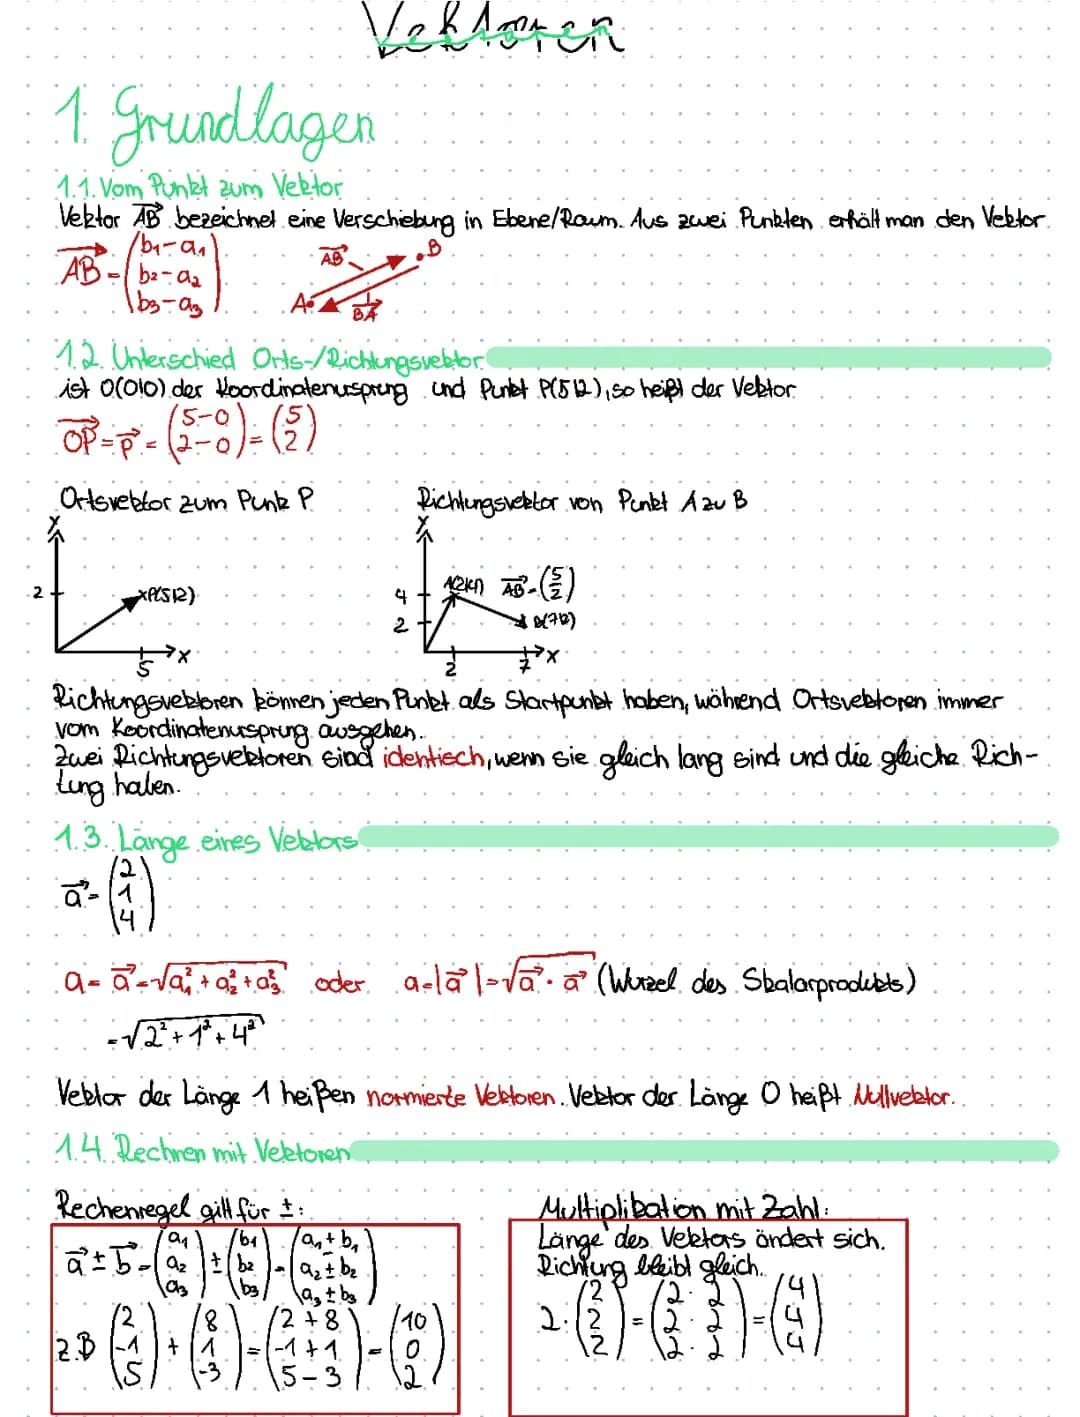 Vektoren
1. Grundlagen
1.1. Vom Punkt zum Vektor
Vektor AB⃗ bezeichnet eine Verschiebung in Ebene/Raum. Aus zwei Punkten erhält man den Vektor
AB⃗ = (b₁-a₁ b₂-a₂ b₃-a₃) AB⃗ B
A BA⃗
1.2. Unterschied Orts-/Richtungsvektor
ist O(0|0) der Koordinatenusprung und Punkt P(5|2), so heißt der Vektor
OP⃗ = p⃗ = (5-0 2-0) = (5 2)
Ortsvektor zum Punk P Richtungsvektor von Punkt A zu B
y y
2 P(5|2) 4 AB⃗ = (5 2)
2 B(7|2)
5 x 2 7 x
Richtungsvektoren können jeden Punkt als Startpunkt haben, während Ortsvektoren immer
vom Koordinatenusprung ausgehen.
Zwei Richtungsvektoren sind identisch, wenn sie gleich lang sind und die gleiche Rich-
tung haben.
1.3. Länge eines Vektors
a⃗ = (2 1 4)
a = a⃗ = √a₁² + a₂² + a₃² oder a = |a⃗| = √a⃗ · a⃗ (Wurzel des Skalarprodukts)
= √2² + 1² + 4²
Vektor der Länge 1 heißen normierte Vektoren. Vektor der Länge 0 heißt Nullvektor.
1.4. Rechnen mit Vektoren
Rechenregel gilt für ±: Multiplikation mit Zahl:
a⃗ ± b⃗ = (a₁ a₂ a₃) ± (b₁ b₂ b₃) = (a₁ ± b₁ a₂ ± b₂ a₃ ± b₃) Länge des Vektors ändert sich.
Richtung bleibt gleich.
z.B (2 -1 5) + (8 1 -3) = (2+8 -1+1 5-3) = (10 0 2) 2 · (2 2 2) = (2·2 2·2 2·2) = (4 4 4)